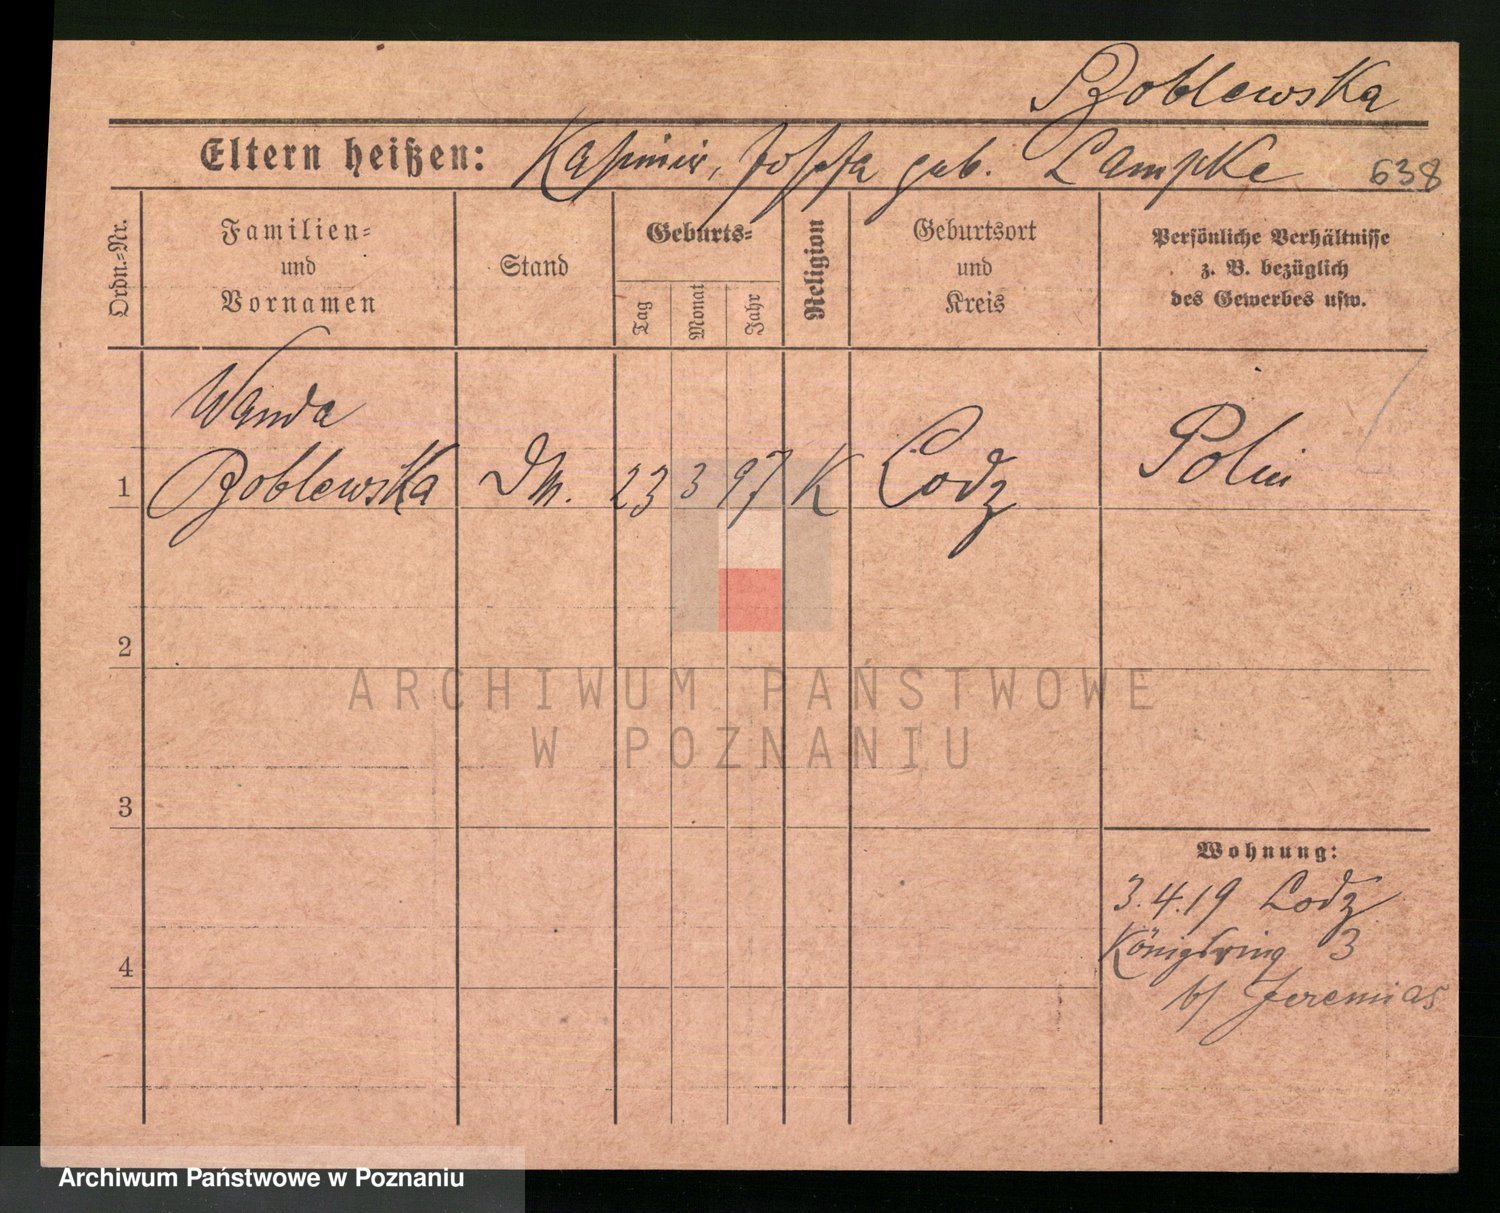 Zoblewska
Eltern heißen: Kasimir, Josefa geb. Lampke 638
Ordn.=Nr.
Familien=
und
Vornamen
Stand
Geburts=
Tag
Monat
Jahr
Religion
Geburtsort
und
Kreis
Persönliche Verhältnisse
z. B. bezüglich
des Gewerbes usw.
Wanda
1 Zoblewska 23 3 97 K Lodz Polin
2
3
4
Wohnung:
3.4.19 Lodz
Königsring 3
b/ Jeremias
ARCHIWUM PAŃSTWOWE
W POZNANIU
Archiwum Państwowe w Poznaniu